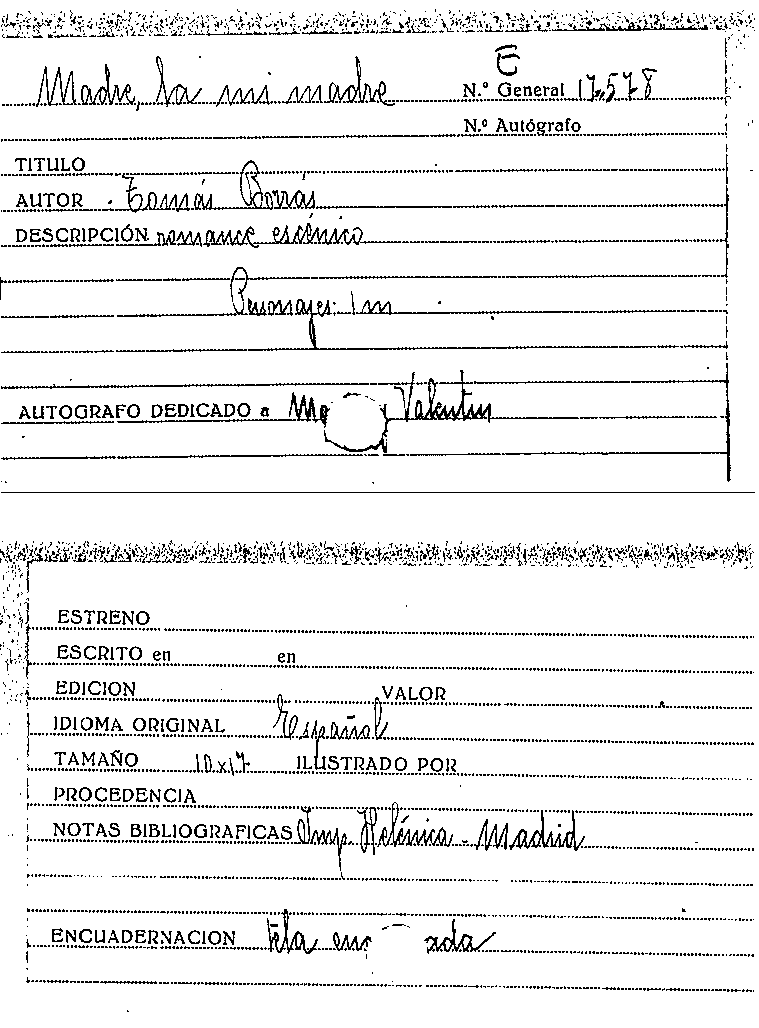 E
Madre, la mi madre N.º General 17.578
N.º Autógrafo
TITULO
AUTOR . Tomás Borrás
DESCRIPCIÓN romance escénico
Personajes: 1 m
AUTOGRAFO DEDICADO a Valentin
ESTRENO
ESCRITO en en
EDICION VALOR
IDIOMA ORIGINAL Español
TAMAÑO 10x17 ILUSTRADO POR
PROCEDENCIA
NOTAS BIBLIOGRAFICAS Imp. Helénica - Madrid
ENCUADERNACION tela